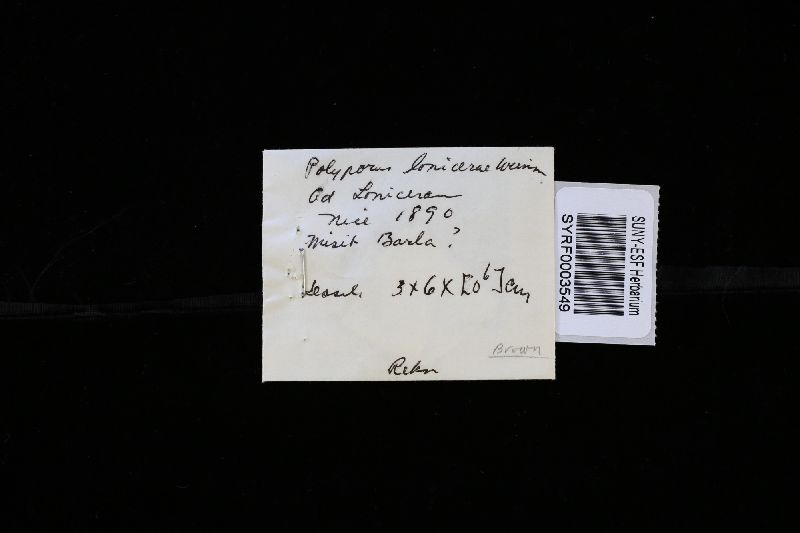 Polyporus lonicerae Weinm
Ad Loniceram
Nice 1890
Misit Barla?
3 x 6 x [0 6] cm
Brown
Rehm
SUNY-ESF Herbarium
SYRF0003549